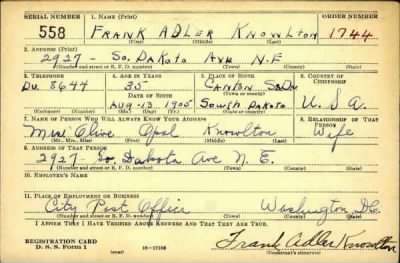 SERIAL NUMBER 1. NAME (Print) ORDER NUMBER
558 FRANK ADLER KNOWLTON 1744
(First) (Middle) (Last)
2. ADDRESS (Print)
2927 - SO. DAKOTA AVE N.E
(Number and street or R. F. D. number) (Town) (County) (State)
3. TELEPHONE 4. AGE IN YEARS 5. PLACE OF BIRTH 6. COUNTRY OF CITIZENSHIP
DU. 8644 35 CANTON
DATE OF BIRTH
AUG-13 1905 SOUTH DAKOTA U.S.A.
(Exchange) (Number) (Mo.) (Day) (Yr.) (State or country)
7. NAME OF PERSON WHO WILL ALWAYS KNOW YOUR ADDRESS 8. RELATIONSHIP OF THAT PERSON
Mrs Olive Opal Knowlton Wife
(Mr., Mrs., Miss) (First) (Middle) (Last)
9. ADDRESS OF THAT PERSON
2927 - So. Dakota Ave N. E.
(Number and street or R. F. D. number) (Town) (County) (State)
10. EMPLOYER'S NAME
11. PLACE OF EMPLOYMENT OR BUSINESS
City Post Office Washington D.C.
(Number and street or R. F. D. number) (Town) (County) (State)
I AFFIRM THAT I HAVE VERIFIED ABOVE ANSWERS AND THAT THEY ARE TRUE.
REGISTRATION CARD
D. S. S. Form 1 (over) Frank Adler Knowlton
(Registrant's signature)